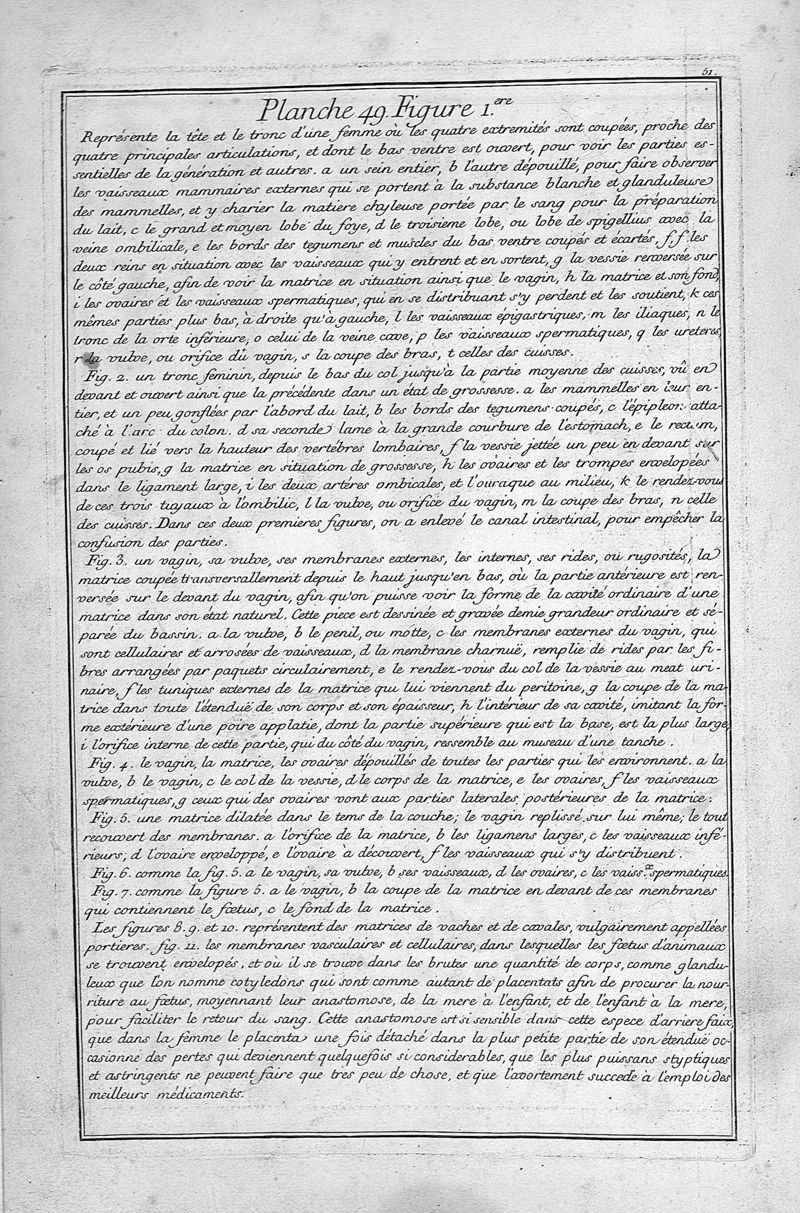 51.
Planche 49. Figure 1.ere
Représente la tête et le tronc d'une femme où les quatre extremités sont coupées, proche des
quatre principales articulations, et dont le bas ventre est ouvert, pour voir les parties es-
sentielles de la génération et autres. a un sein entier, b l'autre dépouillé, pour faire observer
les vaisseaux mammaires externes qui se portent à la substance blanche et glanduleuse
des mammelles, et y charier la matiere chyleuse portée par le sang pour la préparation
du lait, c le grand et moyen lobe du foye, d le troisieme lobe, ou lobe de spigellius avec la
veine ombilicale, e les bords des tegumens et muscles du bas ventre coupés et écartés, f, f les
deux reins en situation avec les vaisseaux qui y entrent et en sortent, g la vessie renversée sur
le côté gauche, afin de voir la matrice en situation ainsi que le vagin, h la matrice et son fond,
i les ovaires et les vaisseaux spermatiques, qui en se distribuant s'y perdent et les soutient, k ces
mêmes parties plus bas, à droite qu'à gauche, l les vaisseaux épigastriques, m les iliaques, n le
tronc de la orte inférieure, o celui de la veine cave, p les vaisseaux spermatiques, q les ureteres,
r la vulve, ou orifice du vagin, s la coupe des bras, t celles des cuisses.
Fig. 2. un tronc féminin, depuis le bas du col jusqu'a la partie moyenne des cuisses, vû en
devant et ouvert ainsi que la précédente dans un état de grossesse. a les mammelles en leur en-
tier, et un peu gonflées par l'abord du lait, b les bords des tegumens coupés, c l'épipleon atta-
ché à l'arc du colon. d sa seconde lame à la grande courbure de l'estomach, e le rectum,
coupé et lié vers la hauteur des vertébres lombaires, f la vessie jettée un peu en devant sur
les os pubis, g la matrice en situation de grossesse, h les ovaires et les trompes envelopées
dans le ligament large, i les deux artéres ombicales, et l'ouraque au milieu, k le rendez-vous
de ces trois tuyaux à l'ombilic, l la vulve, ou orifice du vagin, m la coupe des bras, n celle
des cuisses. Dans ces deux premieres figures, on a enlevé le canal intestinal, pour empêcher la
confusion des parties.
Fig. 3. un vagin, sa vulve, ses membranes externes, les internes, ses rides, ou rugosités, la
matrice coupée transversallement depuis le haut jusqu'en bas, où la partie antérieure est ren-
versée sur le devant du vagin, afin qu'on puisse voir la forme de la cavité ordinaire d'une
matrice dans son état naturel. Cette piece est dessinée et gravée demie grandeur ordinaire et sé-
parée du bassin. a la vulve, b le penil, ou motte, c les membranes externes du vagin, qui
sont cellulaires et arrosées de vaisseaux, d la membrane charnuë, remplie de rides par les fi-
bres arrangées par paquets circulairement, e le rendez-vous du col de la vessie au meat uri-
naire, f les tuniques externes de la matrice qui lui viennent du peritoine, g la coupe de la ma-
trice dans toute l'étenduë de son corps et son épaisseur, h l'intérieur de sa cavité, imitant la for-
me extérieure d'une poire applatie, dont la partie supérieure qui est la base, est la plus large,
i l'orifice interne de cette partie, qui du côté du vagin, ressemble au museau d'une tanche.
Fig. 4. le vagin, la matrice, les ovaires dépouillés de toutes les parties qui les environnent. a la
vulve, b le vagin, c le col de la vessie, d le corps de la matrice, e les ovaires, f les vaisseaux
spermatiques, g ceux qui des ovaires vont aux parties laterales, postérieures de la matrice.
Fig. 5. une matrice dilatée dans le tems de la couche; le vagin replissé sur lui même; le tout
recouvert des membranes. a l'orifice de la matrice, b les ligamens larges, c les vaisseaux infé-
rieurs, d l'ovaire enveloppé, e l'ovaire à découvert, f les vaisseaux qui s'y distribuent.
Fig. 6. comme la fig. 5. a le vagin, sa vulve, b ses vaisseaux, d les ovaires, c les vaiss.x spermatiques.
Fig. 7. comme la figure 5. a le vagin, b la coupe de la matrice en devant de ces membranes
qui contiennent le fœtus, c le fond de la matrice.
Les figures 8. 9. et 10. représentent des matrices de vaches et de cavales, vulgairement appellées
portieres. fig. 11. les membranes vasculaires et cellulaires, dans lesquelles les fœtus d'animaux
se trouvent envelopés, et où il se trouve dans les brutes une quantité de corps, comme glandu-
leux que l'on nomme cotyledons qui sont comme autant de placentats afin de procurer la nour-
riture au fœtus, moyennant leur anastomose, de la mere à l'enfant, et de l'enfant à la mere,
pour faciliter le retour du sang. Cette anastomose est si sensible dans cette espece d'arriere faix,
que dans la femme le placenta une fois détaché dans la plus petite partie de son étenduë oc-
casionne des pertes qui deviennent quelquefois si considerables, que les plus puissans styptiques
et astringents ne peuvent faire que tres peu de chose, et que l'avortement succede à l'emploi des
meilleurs médicaments.